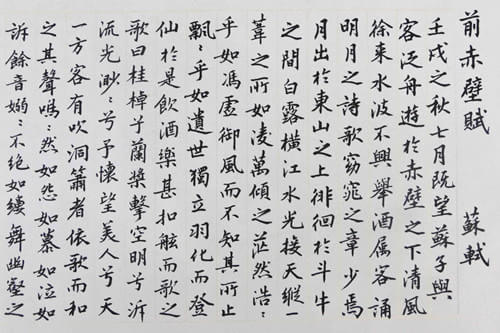 前赤壁賦 蘇軾
壬戌之秋七月既望蘇子與
客泛舟遊於赤壁之下清風
徐來水波不興舉酒属客誦
明月之詩歌窈窕之章少焉
月出於東山之上徘徊於斗牛
之間白露橫江水光接天縱一
葦之所如凌萬傾之茫然浩〻
乎如馮虛御風而不知其所止
飄〻乎如遺世獨立羽化而登
仙於是飲酒樂甚扣舷而歌之
歌曰桂棹兮蘭槳擊空明兮泝
流光渺〻兮予懷望美人兮天
一方客有吹洞簫者依歌而和
之其聲嗚〻然如怨如慕如泣如
訴餘音嫋〻不絕如縷舞幽壑之